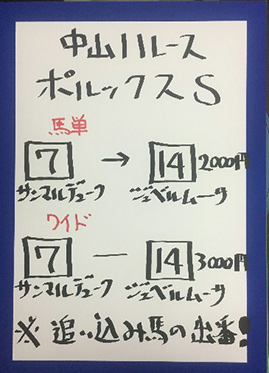 中山11レース
ポルックスS
馬単
7 → 14 2000円
サンマルデューク ジェベルムーサ
ワイド
7 — 14 3000円
サンマルデューク ジェベルムーサ
※追い込み馬の出番!